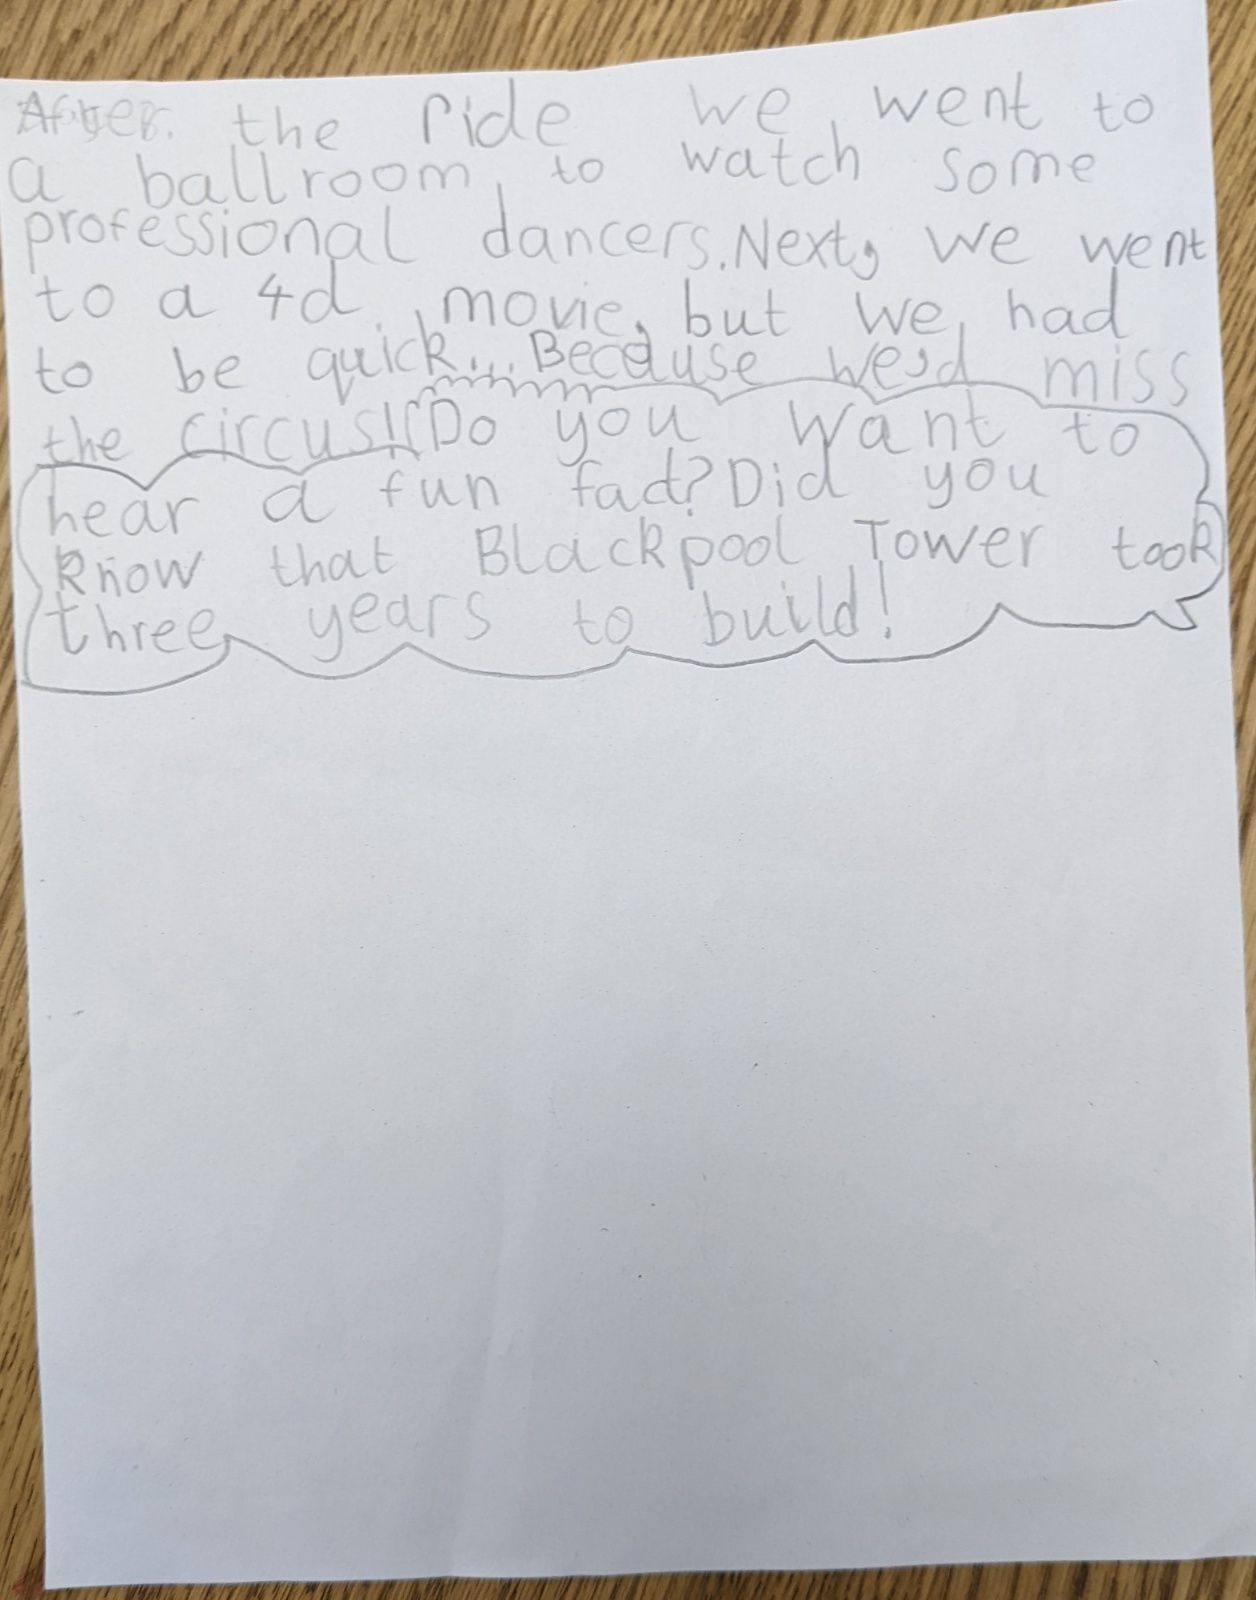 After the ride we went to
a ballroom to watch some
professional dancers. Next, we went
to a 4d movie, but we had
to be quick... Because we'd miss
the circus!! Do you want to
hear a fun fact? Did you
know that Blackpool Tower took
three years to build!